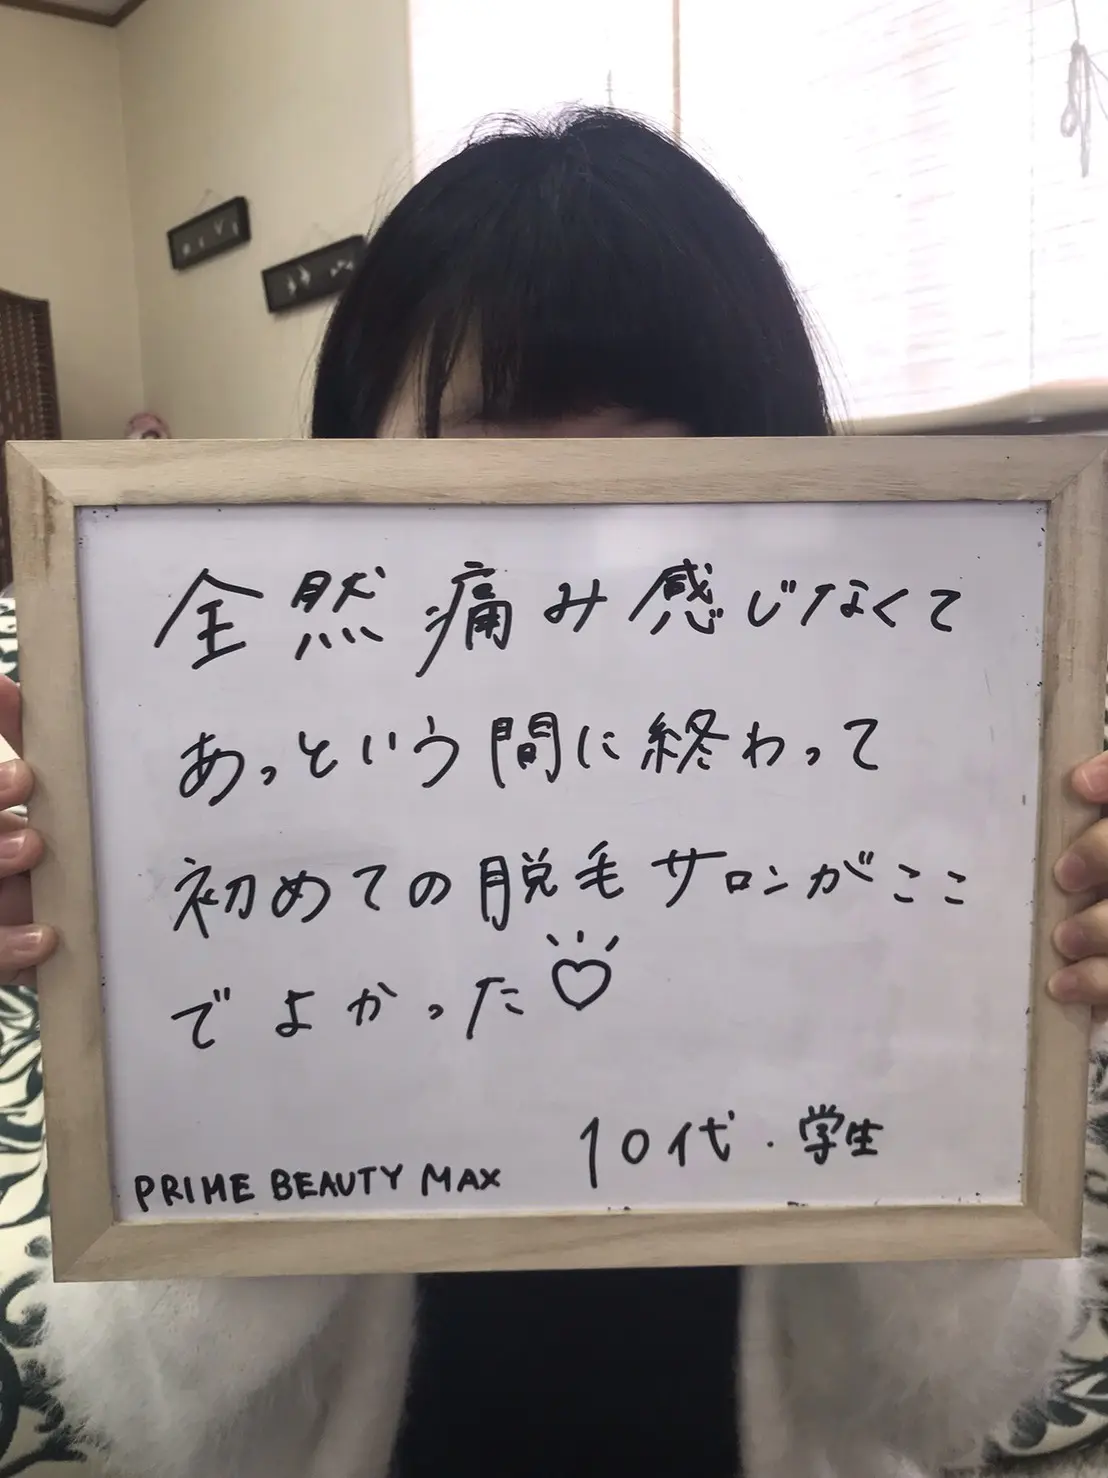 全然痛み感じなくて
あっという間に終わって
初めての脱毛サロンがここ
でよかった♡
10代・学生
PRIME BEAUTY MAX